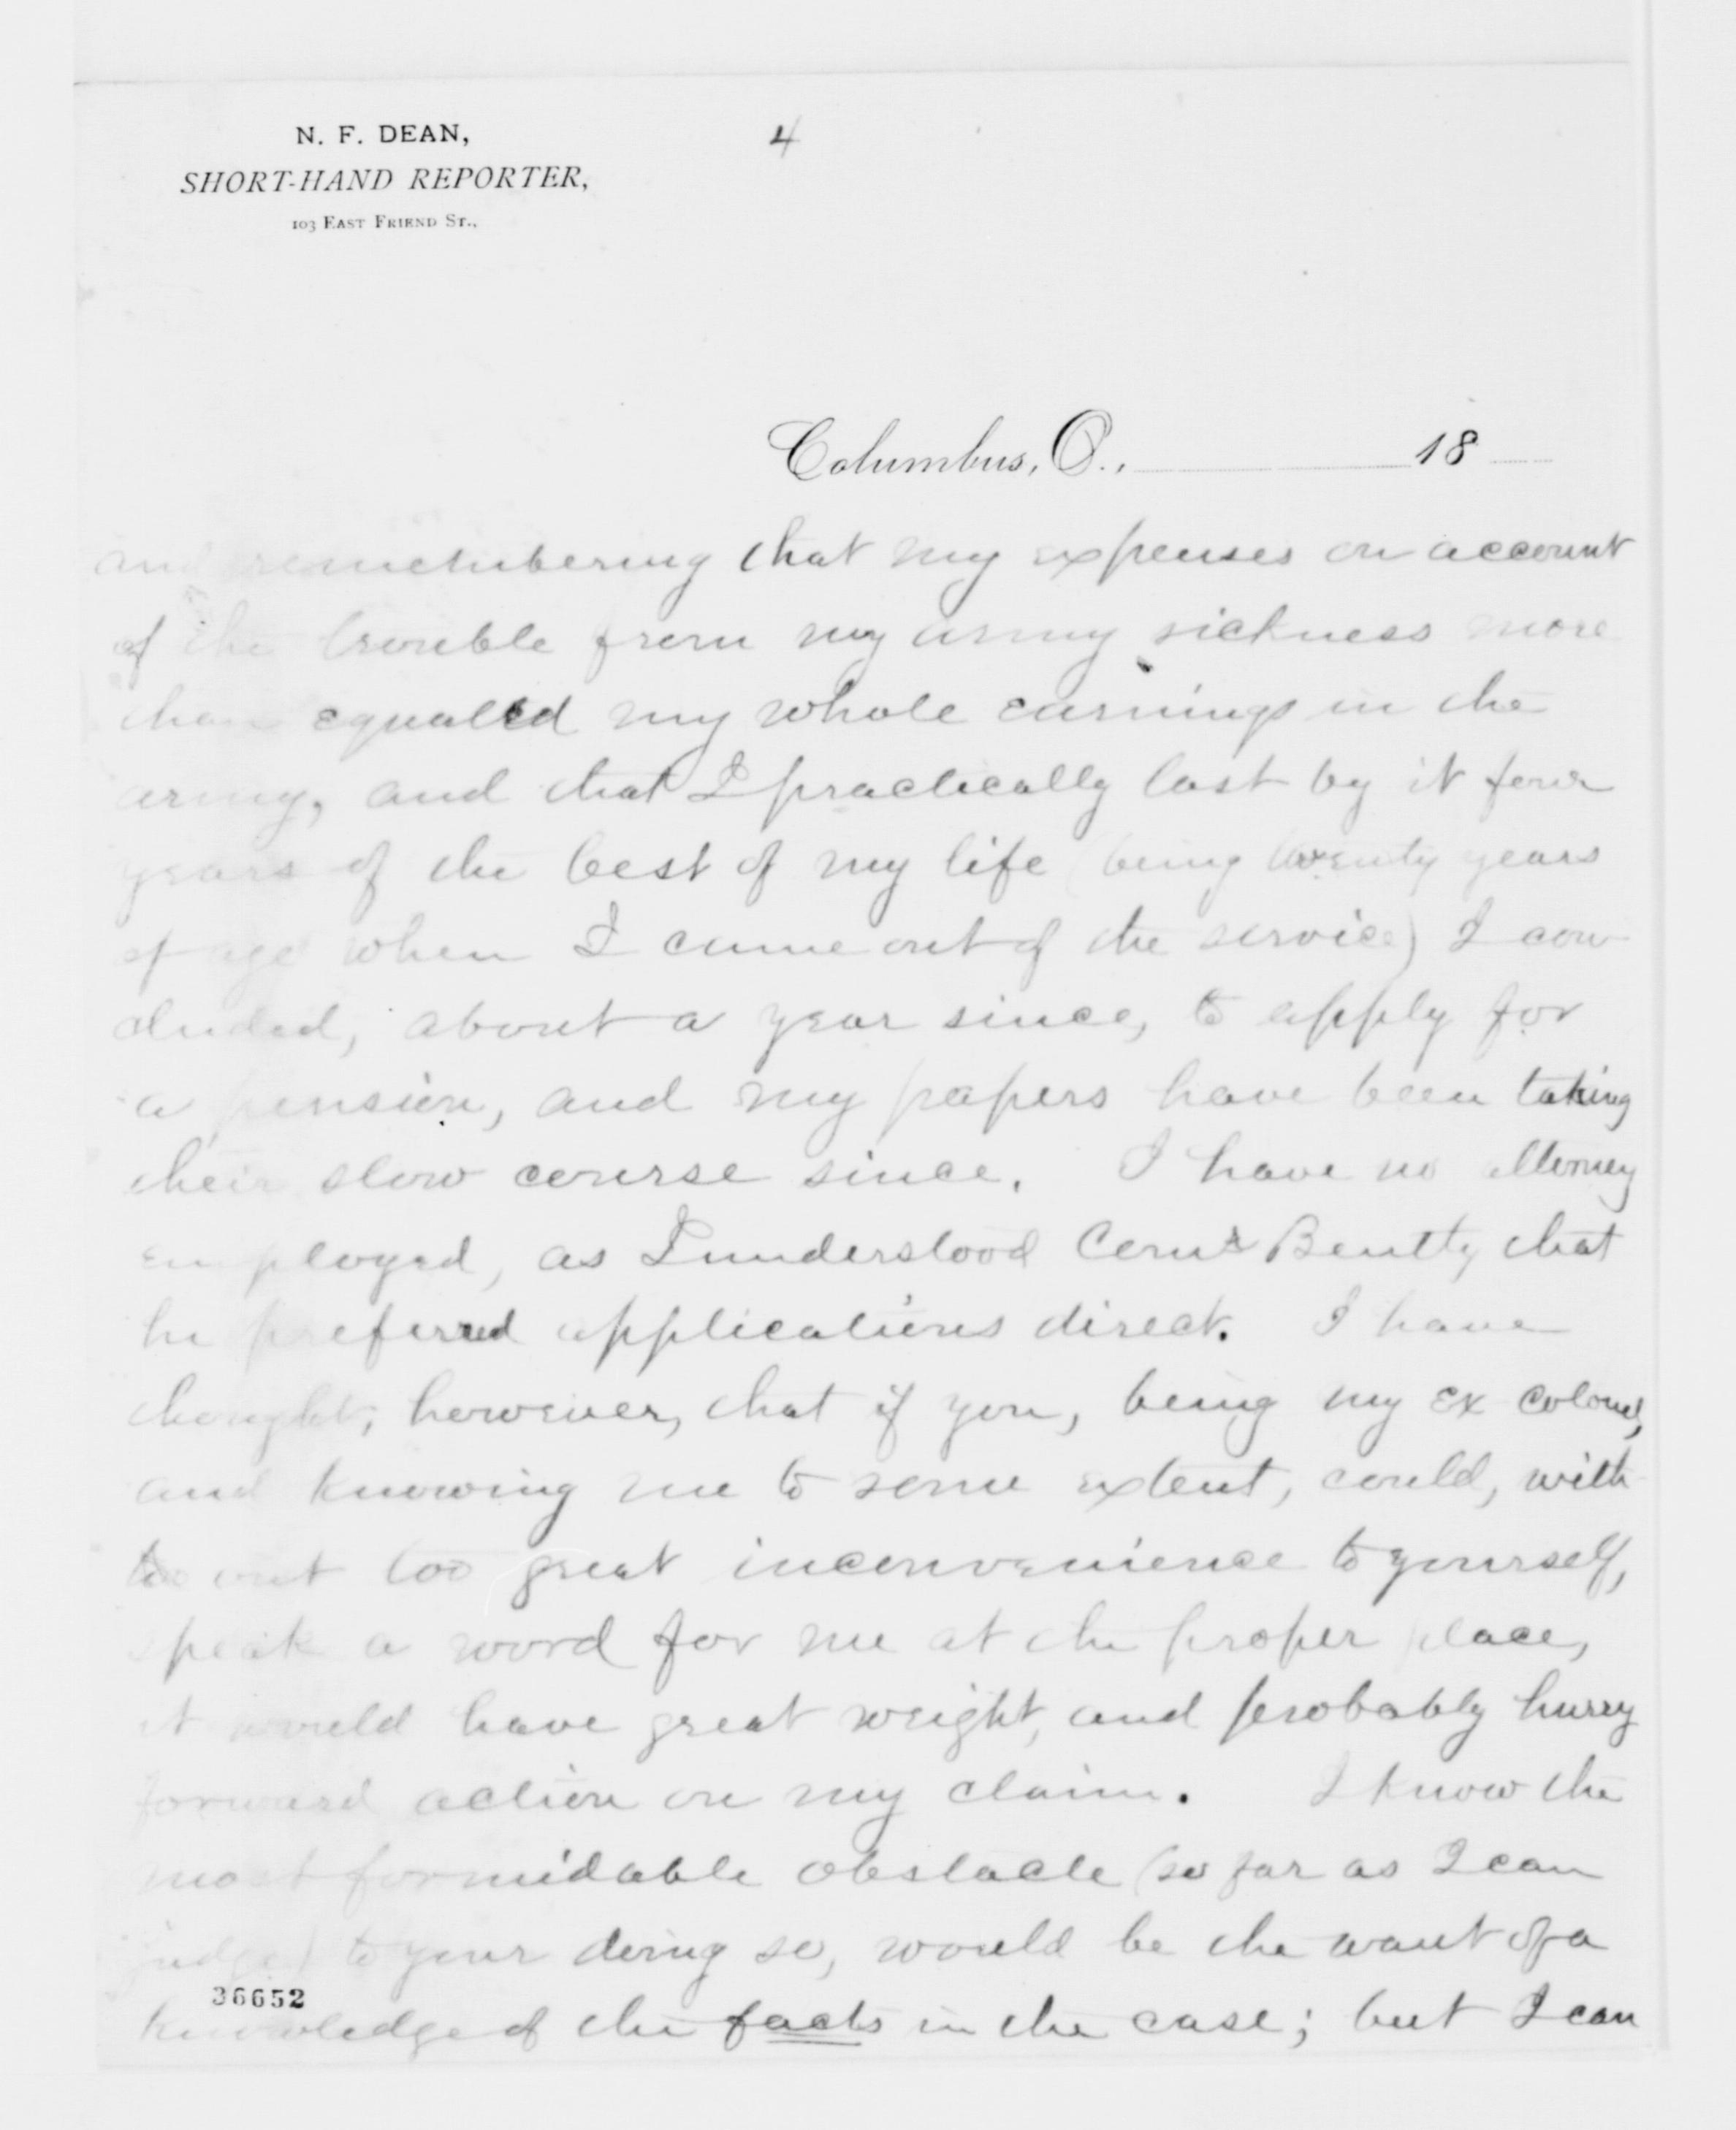 N. F. DEAN,
SHORT-HAND REPORTER,
103 EAST FRIEND ST.,
4
Columbus, O., 18
and remembering that my expenses on account
of the trouble from my army sickness more
than equaled my whole earnings in the
army, and that I practically lost by it four
years of the best of my life (being twenty years
of age when I came out of the service) I con
cluded, about a year since, to apply for
a pension, and my papers have been taking
their slow course since. I have no attorney
employed, as I understood Com'r Bentley that
he preferred applications direct. I have
thought, however, that if you, being my ex colonel,
and knowing me to some extent, could, with
out too great inconvenience to yourself,
speak a word for me at the proper place,
it would have great weight, and probably hurry
forward action on my claim. I know the
most formidable obstacle (so far as I can
judge) to your doing so, would be the want of a
36652
knowledge of the facts in the case; but I can